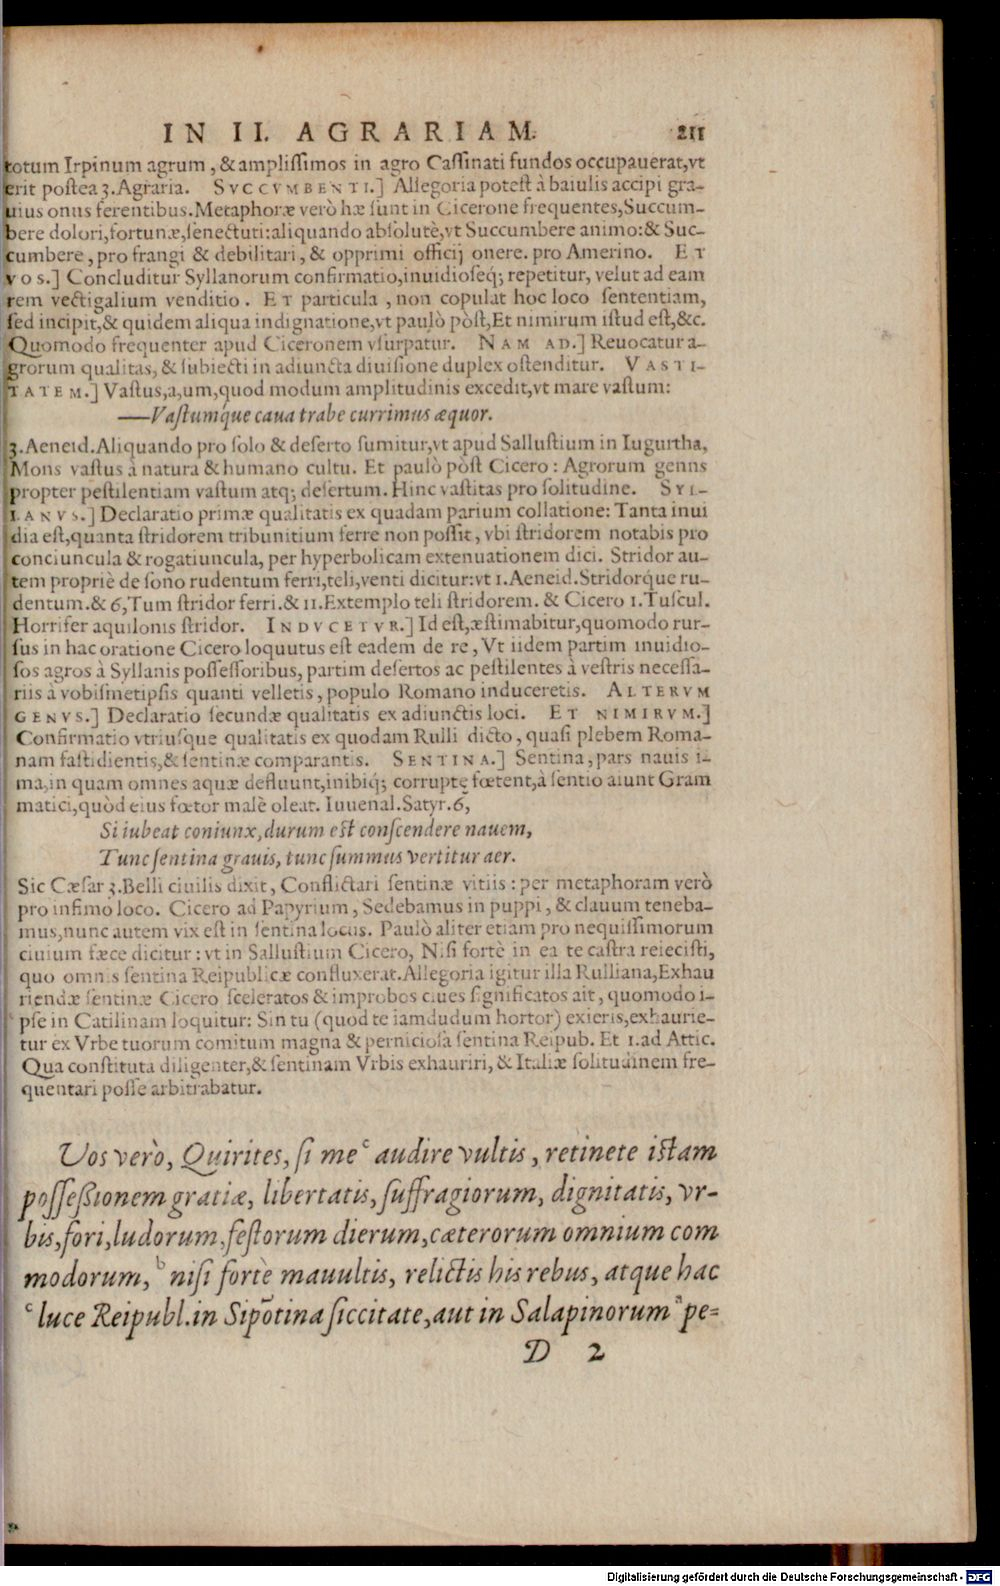 IN II. AGRARIAM. 211
totum Irpinum agrum, & amplissimos in agro Cassinati fundos occupauerat, vt
erit postea 3. Agraria. SVCCVMBENTI.] Allegoria potest à baiulis accipi gra-
uius onus ferentibus. Metaphoræ verò hæ sunt in Cicerone frequentes, Succum-
bere dolori, fortunæ, senectuti: aliquando absolutè, vt Succumbere animo: & Suc-
cumbere, pro frangi & debilitari, & opprimi officij onere. pro Amerino. ET
VOS.] Concluditur Syllanorum confirmatio, inuidioseq; repetitur, velut ad eam
rem vectigalium venditio. ET particula, non copulat hoc loco sententiam,
sed incipit, & quidem aliqua indignatione, vt paulò pòst, Et nimirum istud est, &c.
Quomodo frequenter apud Ciceronem vsurpatur. NAM AD.] Reuocatur a-
grorum qualitas, & subiecti in adiuncta diuisione duplex ostenditur. VASTI-
TATEM.] Vastus, a, um, quod modum amplitudinis excedit, vt mare vastum:
—Vastumque caua trabe currimus æquor.
3. Aeneid. Aliquando pro solo & deserto sumitur, vt apud Sallustium in Iugurtha,
Mons vastus à natura & humano cultu. Et paulò pòst Cicero: Agrorum genns
propter pestilentiam vastum atq; desertum. Hinc vastitas pro solitudine. SYL-
LANVS.] Declaratio primæ qualitatis ex quadam parium collatione: Tanta inui
dia est, quanta stridorem tribunitium ferre non possit, vbi stridorem notabis pro
conciuncula & rogatiuncula, per hyperbolicam extenuationem dici. Stridor au-
tem propriè de sono rudentum ferri, teli, venti dicitur: vt 1. Aeneid. Stridorque ru-
dentum. & 6, Tum stridor ferri. & 11. Extemplo teli stridorem. & Cicero 1. Tuscul.
Horrifer aquilonis stridor. INDVCETVR.] Id est, æstimabitur, quomodo rur-
sus in hac oratione Cicero loquutus est eadem de re, Vt iidem partim inuidio-
sos agros à Syllanis possessoribus, partim desertos ac pestilentes à vestris necessa-
riis à vobismetipsis quanti velletis, populo Romano induceretis. ALTERVM
GENVS.] Declaratio secundæ qualitatis ex adiunctis loci. ET NIMIRVM.]
Confirmatio vtriusque qualitatis ex quodam Rulli dicto, quasi plebem Roma-
nam fastidientis, & sentinæ comparantis. SENTINA.] Sentina, pars nauis i-
ma, in quam omnes aquæ defluunt, inibiq; corruptę fœtent, à sentio aiunt Gram
matici, quòd eius fœtor malè oleat. Iuuenal. Satyr. 6,
Si iubeat coniunx, durum est conscendere nauem,
Tunc sentina grauis, tunc summus vertitur aer.
Sic Cæsar 3. Belli ciuilis dixit, Conflictari sentinæ vitiis: per metaphoram verò
pro infimo loco. Cicero ad Papyrium, Sedebamus in puppi, & clauum teneba-
mus, nunc autem vix est in sentina locus. Paulò aliter etiam pro nequissimorum
ciuium fæce dicitur: vt in Sallustium Cicero, Nisi fortè in ea te castra reiecisti,
quo omnis sentina Reipublicæ confluxerat. Allegoria igitur illa Rulliana, Exhau
riendæ sentinæ Cicero sceleratos & improbos ciues significatos ait, quomodo i-
pse in Catilinam loquitur: Sin tu (quod te iamdudum hortor) exieris, exhaurie-
tur ex Vrbe tuorum comitum magna & perniciosa sentina Reipub. Et 1. ad Attic.
Qua constituta diligenter, & sentinam Vrbis exhauriri, & Italiæ solitudinem fre-
quentari posse arbitrabatur.
Vos verò, Quirites, si me c audire vultis, retinete istam
possessionem gratiæ, libertatis, suffragiorum, dignitatis, vr-
bis, fori, ludorum, festorum dierum, cæterorum omnium com
modorum, b nisi fortè mauultis, relictis his rebus, atque hac
c luce Reipubl. in Sipōtina siccitate, aut in Salapinorum a pe-
D 2
Digitalisierung gefördert durch die Deutsche Forschungsgemeinschaft - DFG